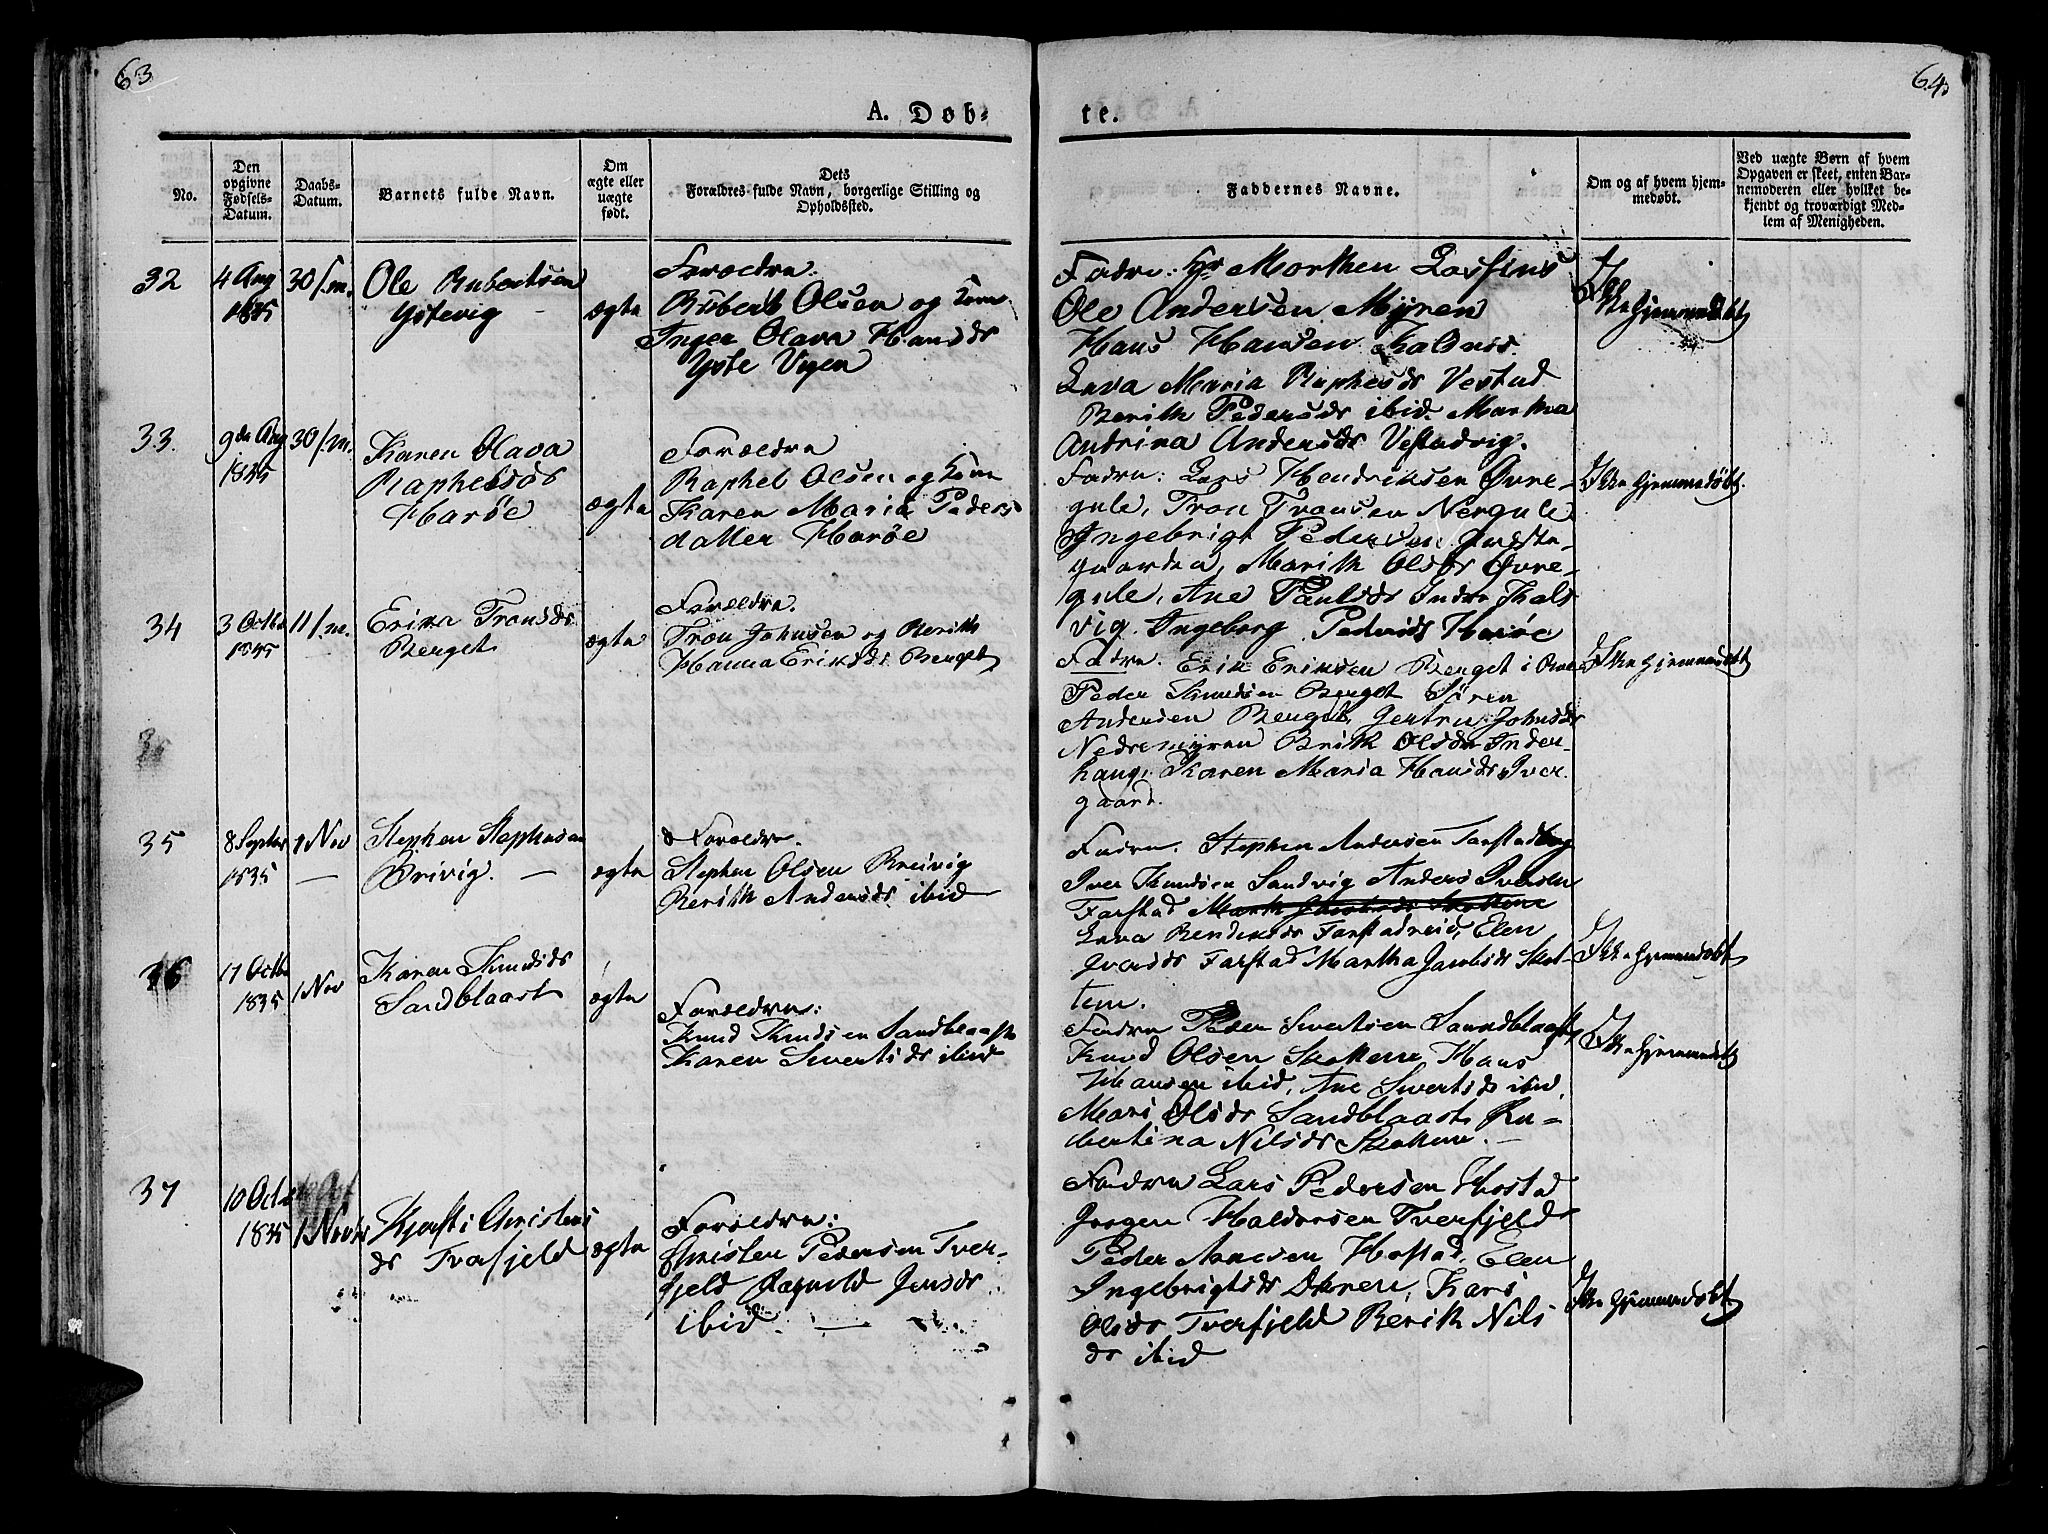 63
64
A. Døb-
te.
No.
Den opgivne Fødsels-Datum.
Daabs-Datum.
Barnets fulde Navn.
Om ægte eller uægte født.
Dets
Forældres fulde Navn, borgerlige Stilling og
Opholdssted.
Faddernes Navne.
Om og af hvem hjem-
medøbt.
Ved uægte Børn af hvem
Opgaven er skeet, enten Bar-
nemoderen eller hvilket be-
kjendt og troværdigt Med-
lem af Menigheden.
32
4 Aug
1835
30 s.m.
Ole Rubertsen
Ystevig
ægte
Forældre:
Rubert Olsen og Kone
Inger Olava Hansds
Yste Vigen
Fadre: Hr Morthen
Ole Andersen Myren
Hans Hansen
Maria Raphelsds Vestad
Berith Pedersds ibid. Martha
Andrina Andersds Vestadvig.
Ikke Hjemmedøbt
33.
9de Aug
1835
30 s.m.
Karen Olava
Raphelsds
Harøe
ægte
Forældre
Raphel Olsen og Kone
Karen Maria Peders
datter Harøe
Fadre: Lars Hendriksen Øvre-
gule, Tron Tronsen Nergule
Ingebrigt Pedersen Præste-
gaarden, Marith Olsds Øvre-
gule, Ane Paulsds Indre
vig. Ingeborg Pedersds Harøe
Ikke Hjemmedøbt.
34
3 Octbr
1835
11 s.m.
Erika Tronsds
Berget
ægte
Forældre.
Tron Johnsen og Berith
Hanna Eriksds Berget
Fadre. Erik Eriksen Berget i
Peder Knudsen Berget Sören
Andersen Berget, Jertru Johnsds
Nedremyren Brith Olsds Inder-
haug, Karen Maria Hansds Iver-
gaard.
Ikke Hjemmedøbt
35
8 Septbr
1835
1 Nov
Stephen Stephensen
Brivig.
ægte
Forældre.
Stephen Olsen Breivig
Berith Andersds ibid
Fadre. Stephen Andersen Farstad
Iver Knudsen Sandvig Anders Iversen
Farstad
Bendiksds Farstadreid, Elen
Iversds Farstad Martha Jacobsds Skot-
tem.
Ikke Hjemmedøbt
36
17 Octbr
1835
1 Nov
Karen Knudsds
Sandblaast
ægte
Forældre:
Knud Knudsen Sandblaast
Karen Sivertsds ibid
Fadre Peder Sivertsen Sandblaast,
Knud Olsen Skottem, Hans
Hansen ibid, Ane Sivertsds ibid,
Mari Olsds Sandblaast, Ru-
bertina Nilsds Skottem.
Ikke Hjemmedøbt
37
10 Octbr
1835
1 Novbr
Kjersti Christens
ds Tverfjeld
ægte
Forældre:
Christen Pedersen Tver-
fjeld Ragnild Jensds
ibid.
Fadre Lars Pedersen Hostad
Jørgen Haldorsen Tverfjeld
Peder Hostad, Elen
Ingebrigtsds, Kari
Olsds Tverfjeld Berith Nils-
ds ibid
Ikke Hjemmedøbt